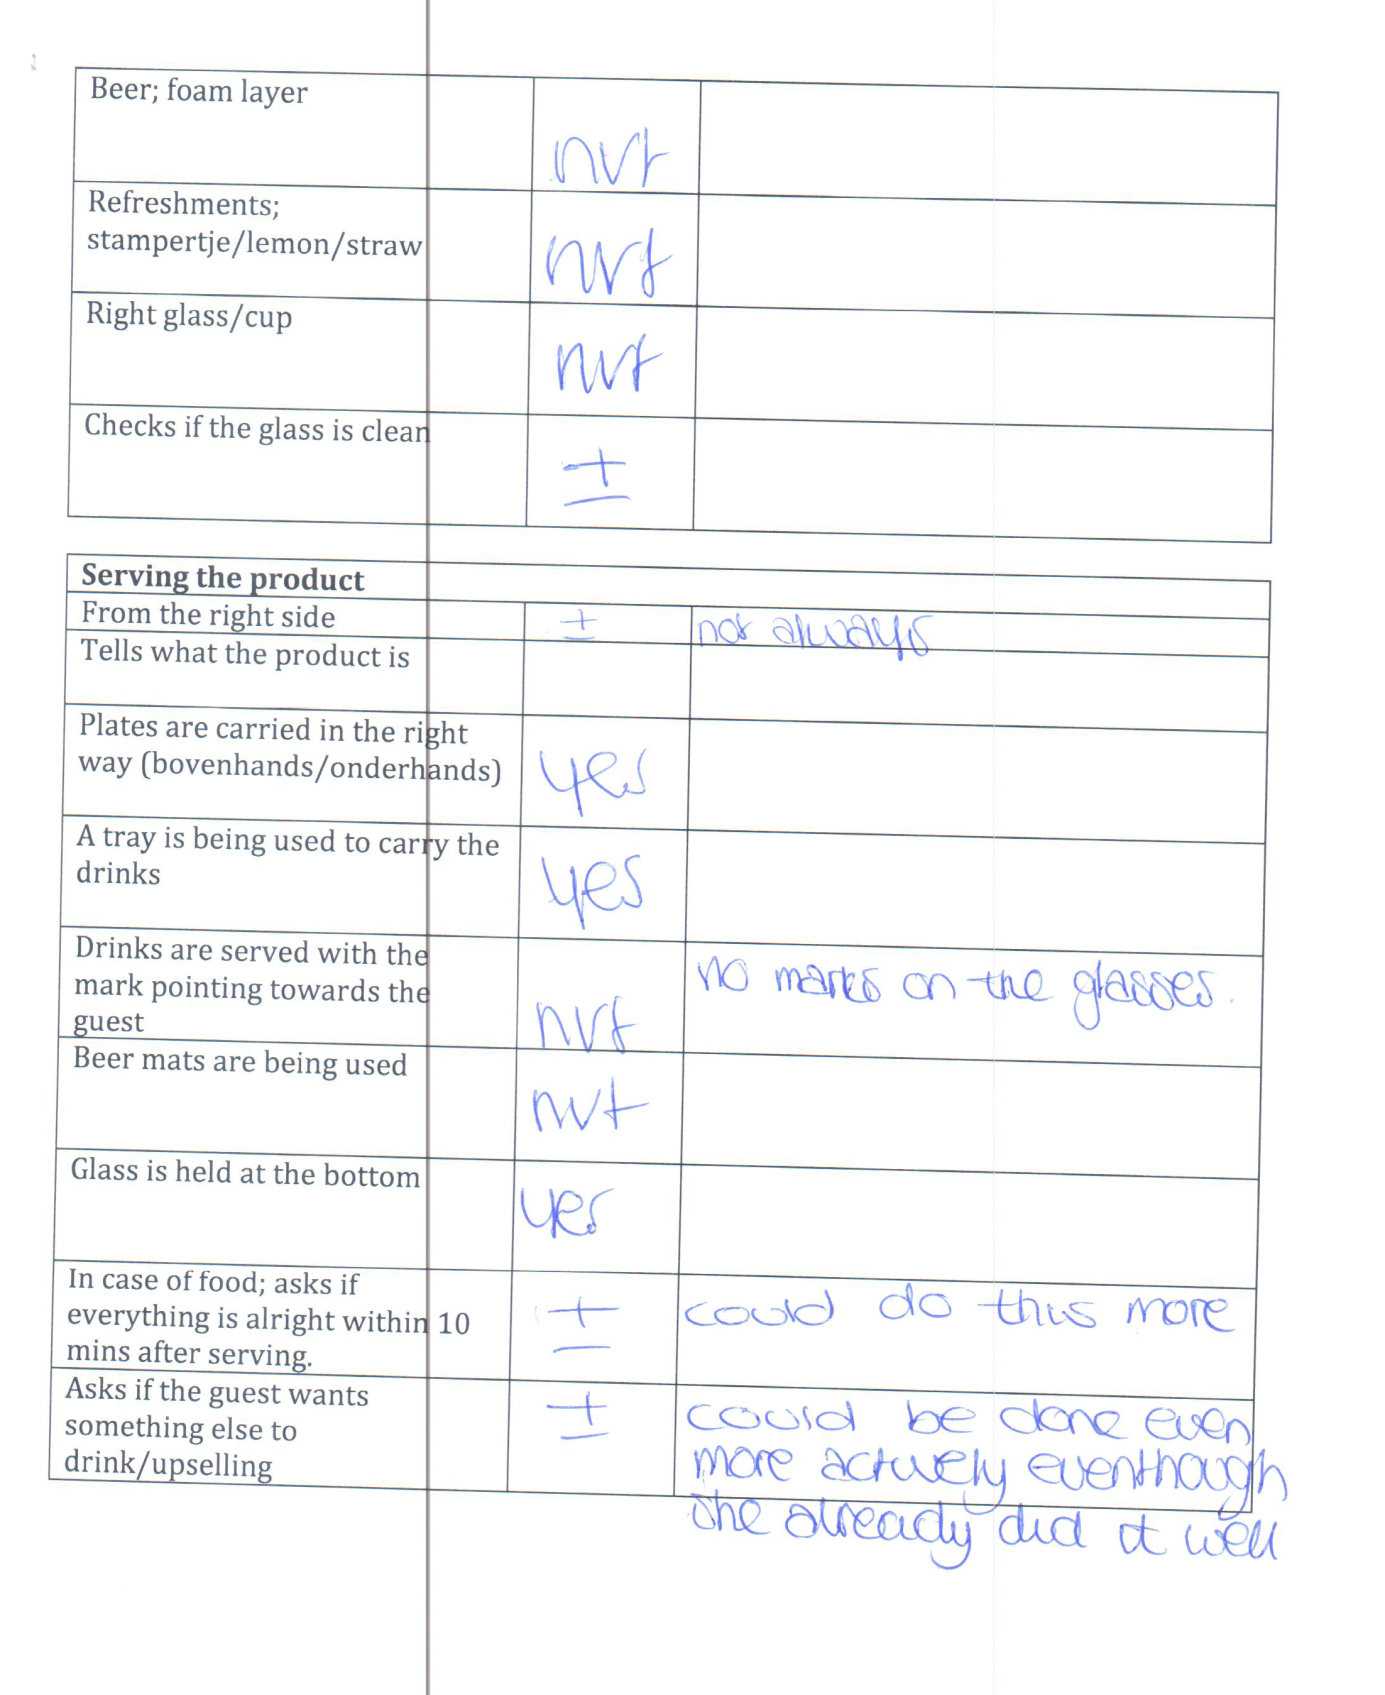 Beer; foam layer
nvt
Refreshments;
stampertje/lemon/straw
nvt
Right glass/cup
nvt
Checks if the glass is clean
±
Serving the product
From the right side ± not always
Tells what the product is
Plates are carried in the right
way (bovenhands/onderhands)
yes
A tray is being used to carry the
drinks
yes
Drinks are served with the
mark pointing towards the
guest
nvt
no marks on the glasses.
Beer mats are being used
nvt
Glass is held at the bottom
yes
In case of food; asks if
everything is alright within 10
mins after serving.
±
could do this more
Asks if the guest wants
something else to
drink/upselling
±
could be done even
more actively eventhough
she already did it well